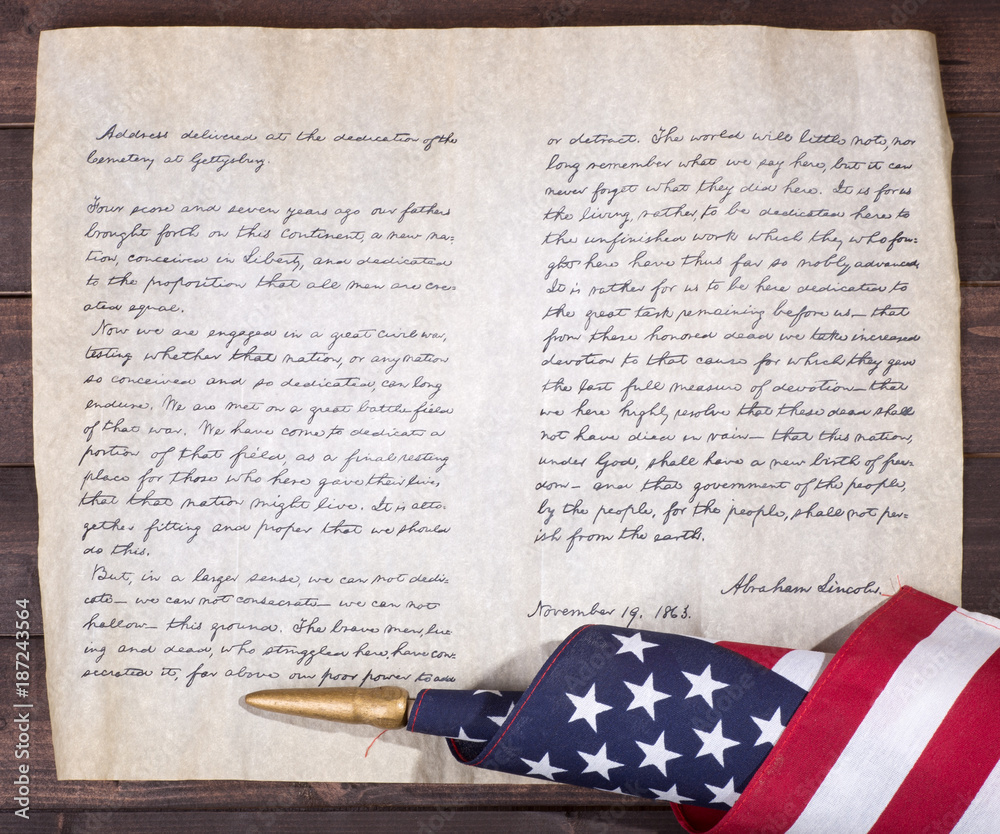 Address delivered at the dedication of the
Cemetery at Gettysburg.
Four score and seven years ago our fathers
brought forth on this continent, a new na-
tion, conceived in Liberty, and dedicated
to the proposition that all men are cre-
ated equal.
Now we are engaged in a great civil war,
testing whether that nation, or any nation
so conceived and so dedicated, can long
endure. We are met on a great battle-field
of that war. We have come to dedicate a
portion of that field, as a final resting
place for those who here gave their lives,
that that nation might live. It is alto-
gether fitting and proper that we should
do this.
But, in a larger sense, we can not dedi-
cate — we can not consecrate — we can not
hallow — this ground. The brave men, liv-
ing and dead, who struggled here, have con-
secrated it, far above our poor power to add
or detract. The world will little note, nor
long remember what we say here, but it can
never forget what they did here. It is for us
the living, rather, to be dedicated here to
the unfinished work which they who fou-
ght here have thus far so nobly advanced.
It is rather for us to be here dedicated to
the great task remaining before us — that
from these honored dead we take increased
devotion to that cause for which they gave
the last full measure of devotion — that
we here highly resolve that these dead shall
not have died in vain — that this nation,
under God, shall have a new birth of free-
dom — and that government of the people,
by the people, for the people, shall not per-
ish from the earth.
Abraham Lincoln.
November 19, 1863.
Adobe Stock | #187243564